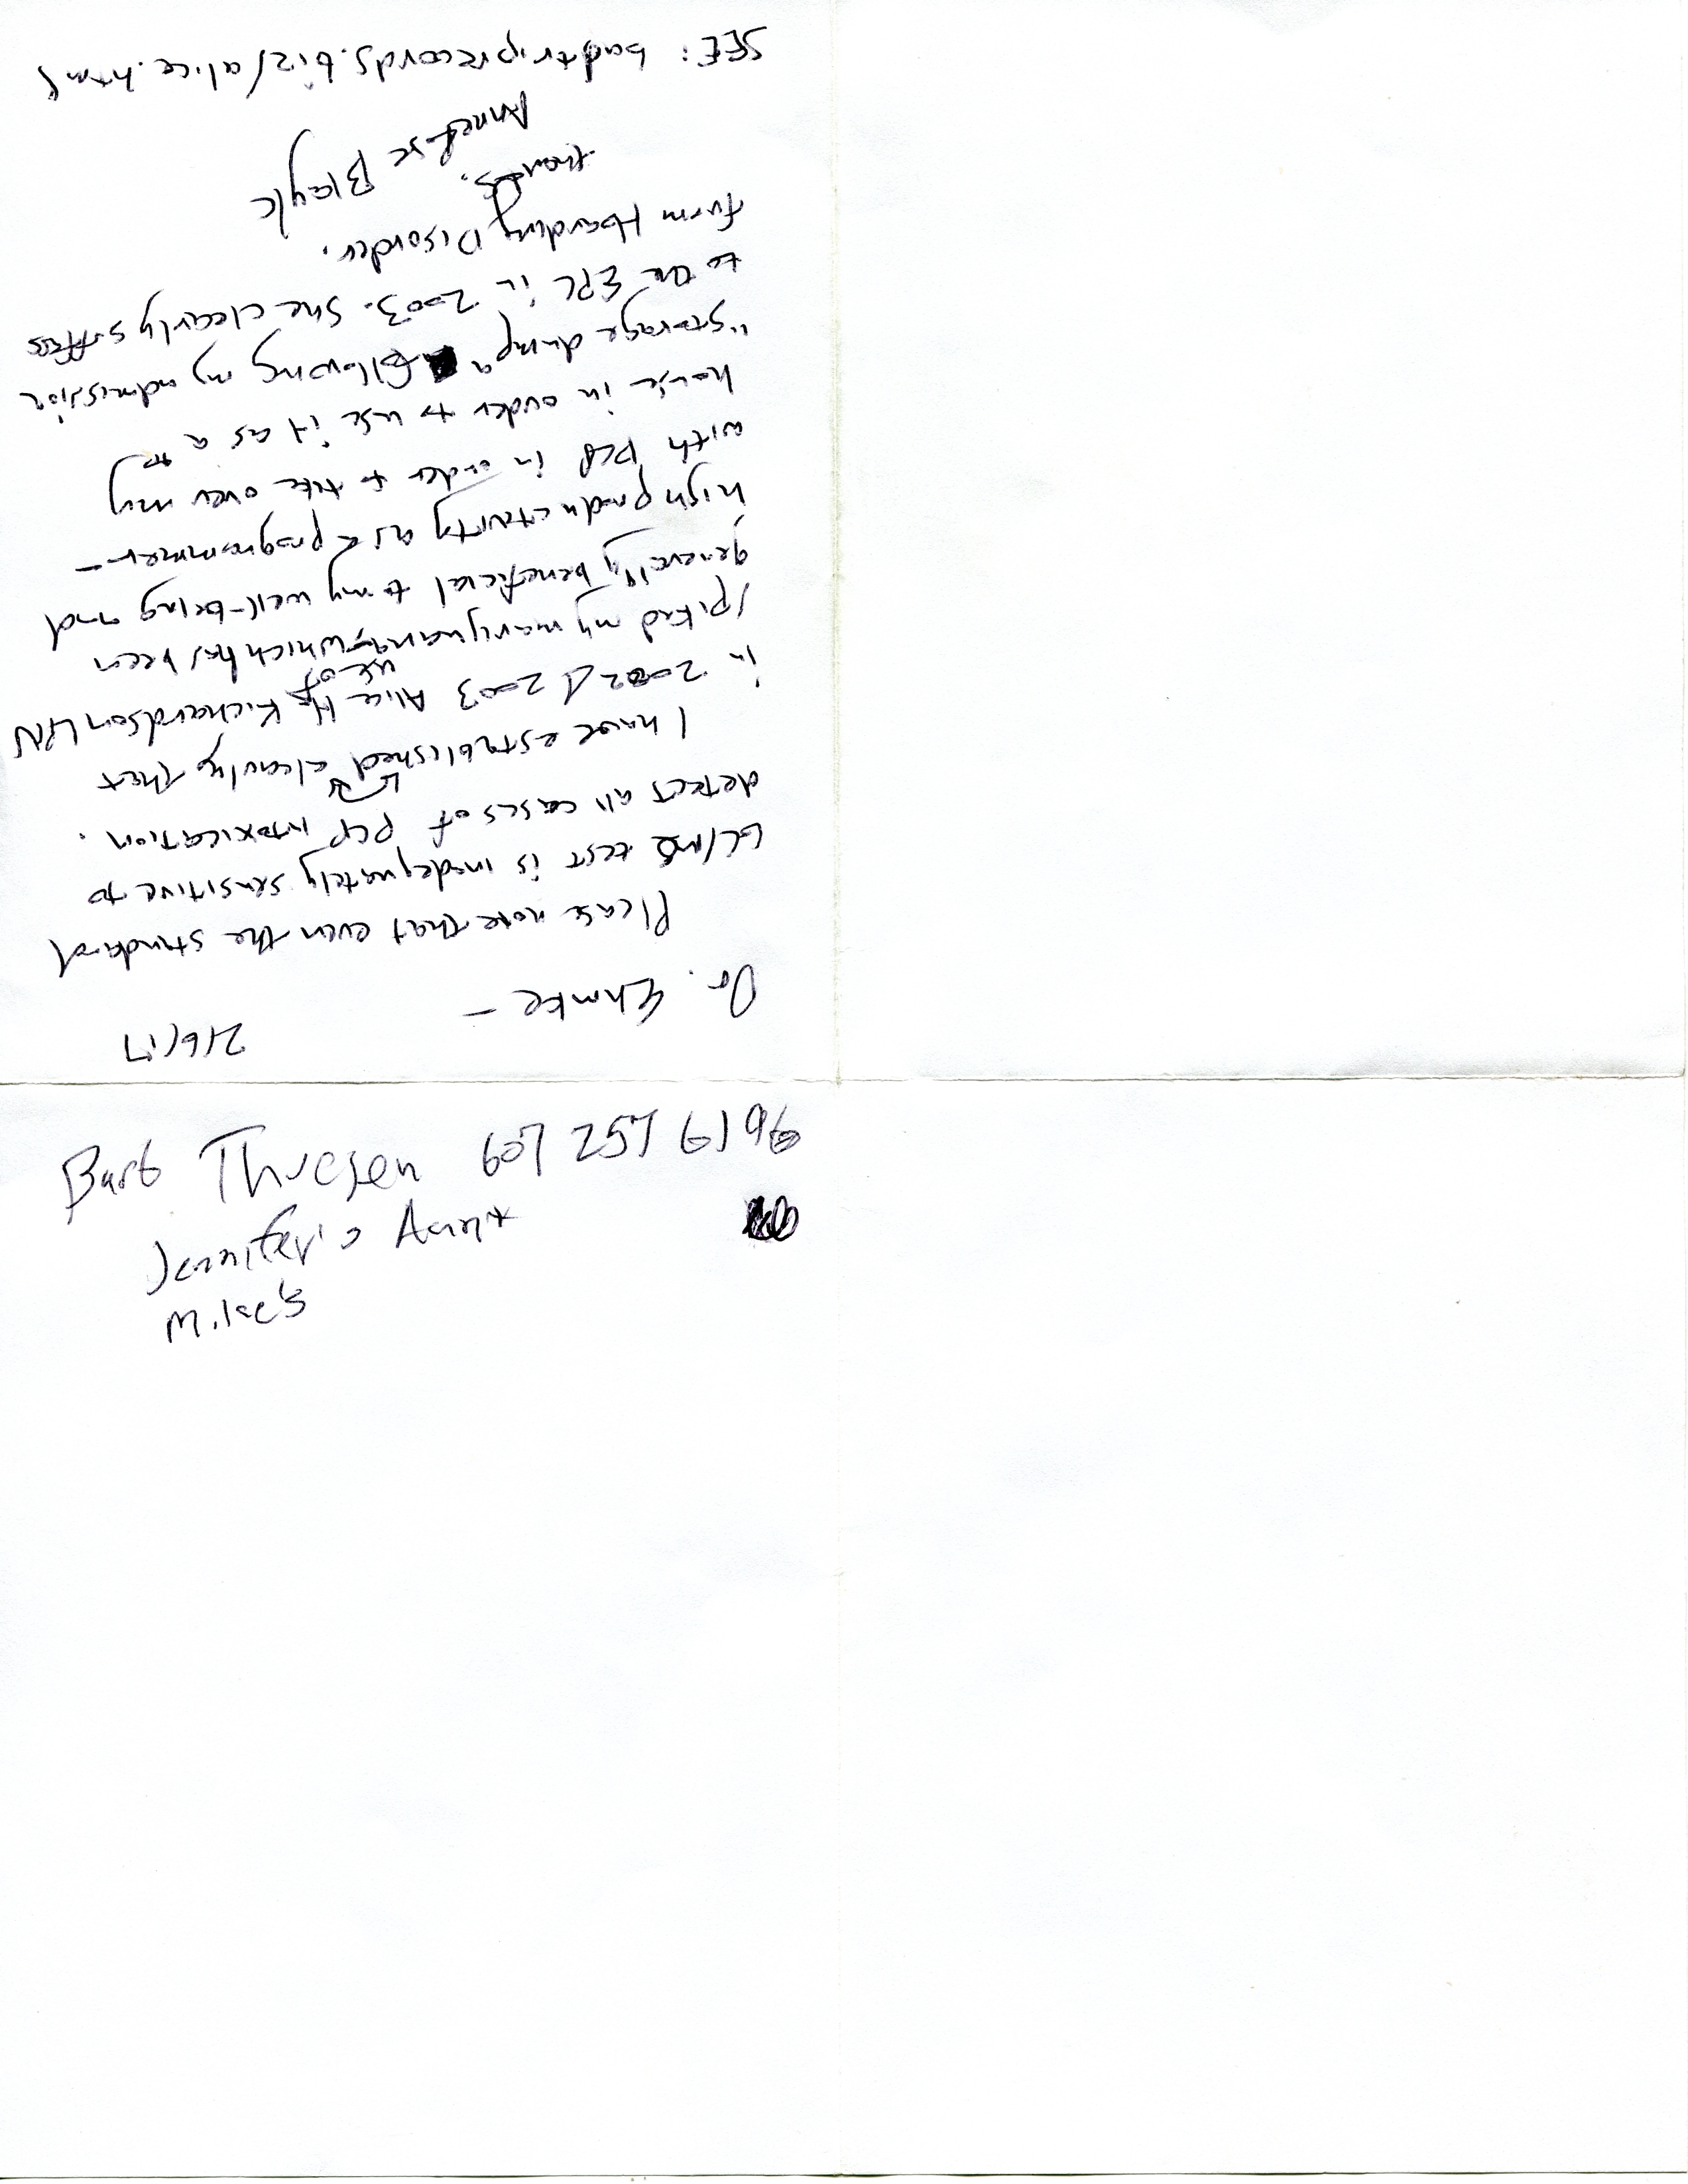 2/6/17
Dr. Ehmke –
Please note that even the standard
GC/MS test is inadequately sensitive to
detect all cases of PCP intoxication.
I have established clearly that
in 2002 & 2003 Alice H. Richardson LPN
spiked my use of marijuana – which has been
generally beneficial to my well-being and
high productivity as a programmer –
with PCP in order to take over my
house in order to use it as a
"storage dump" following my admission
to the EPC in 2003. She clearly suffers
from Hoarding Disorder.
thanks.
Annelise
SEE: badtriprecords.biz/alice.html
Barb Thuesen 607 257 6196
Jennifer's Aunt